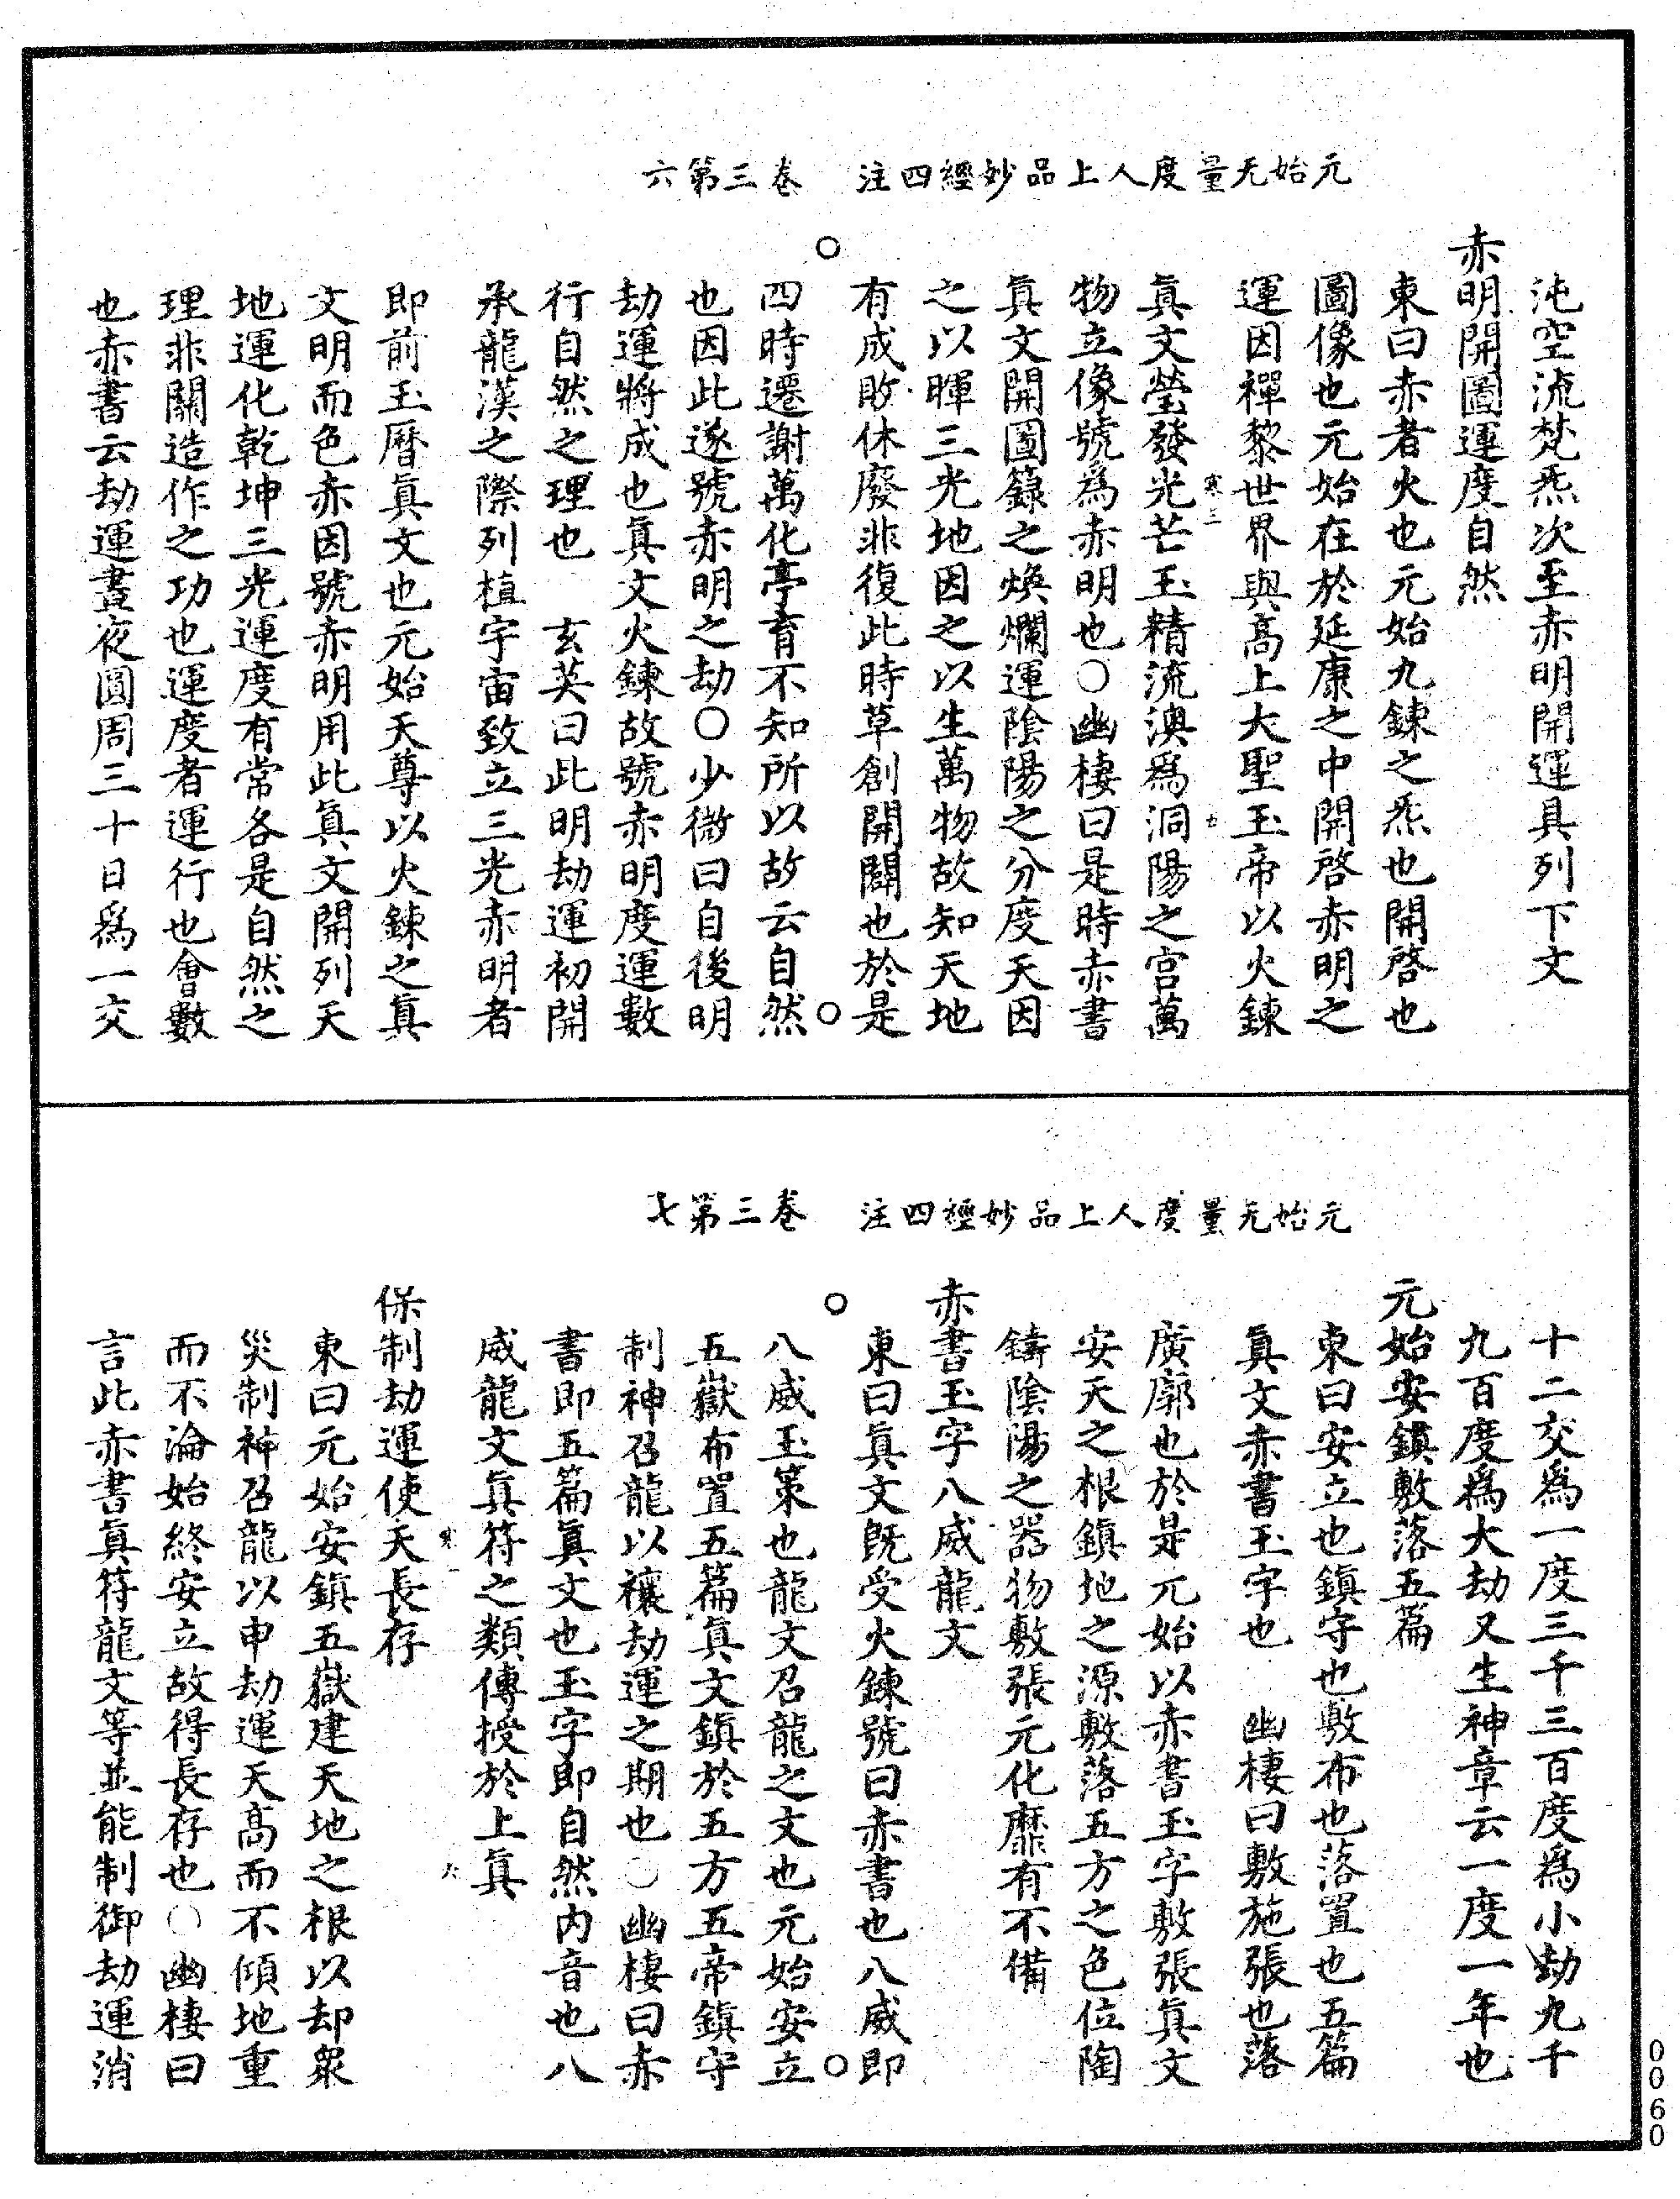 元始无量度人上品妙經四注　卷三第六
沌空流梵炁次至赤明開運具列下文
赤明開圖運度自然
東曰赤者火也元始九鍊之炁也開啓也
圖像也元始在於延康之中開啓赤明之
運因禪黎世界與高上大聖玉帝以火鍊
寒三
真文瑩發光芒玉精流澳爲洞陽之宫萬
物立像號爲赤明也○幽棲曰是時赤書
真文開圖籙之煥爛運陰陽之分度天因
之以暉三光地因之以生萬物故知天地
有成敗休廢非復此時草創開闢也於是
四時遷謝萬化亭育不知所以故云自然
也因此遂號赤明之劫○少微曰自後明
劫運將成也真文火鍊故號赤明度運數
行自然之理也　玄英曰此明劫運初開
承龍漢之際列植宇宙致立三光赤明者
即前玉曆真文也元始天尊以火鍊之真
文明而色赤因號赤明用此真文開列天
地運化乾坤三光運度有常各是自然之
理非關造作之功也運度者運行也會數
也赤書云劫運晝夜圓周三十日爲一交
元始无量度人上品妙經四注　卷三第七
十二交爲一度三千三百度爲小劫九千
九百度爲大劫又生神章云一度一年也
元始安鎮敷落五篇
東曰安立也鎮守也敷布也落置也五篇
真文赤書玉字也　幽棲曰敷施張也落
廣廓也於是元始以赤書玉字敷張真文
安天之根鎮地之源敷落五方之色位陶
鑄陰陽之器物敷張元化靡有不備
赤書玉字八威龍文
東曰真文既受火鍊號曰赤書也八威即
八威玉策也龍文召龍之文也元始安立
五嶽布置五篇真文鎮於五方五帝鎮守
制神召龍以禳劫運之期也○幽棲曰赤
書即五篇真文也玉字即自然内音也八
威龍文真符之類傳授於上真
保制劫運使天長存
東曰元始安鎮五嶽建天地之根以却衆
災制神召龍以申劫運天高而不傾地重
而不淪始終安立故得長存也○幽棲曰
言此赤書真符龍文等並能制御劫運消
0060